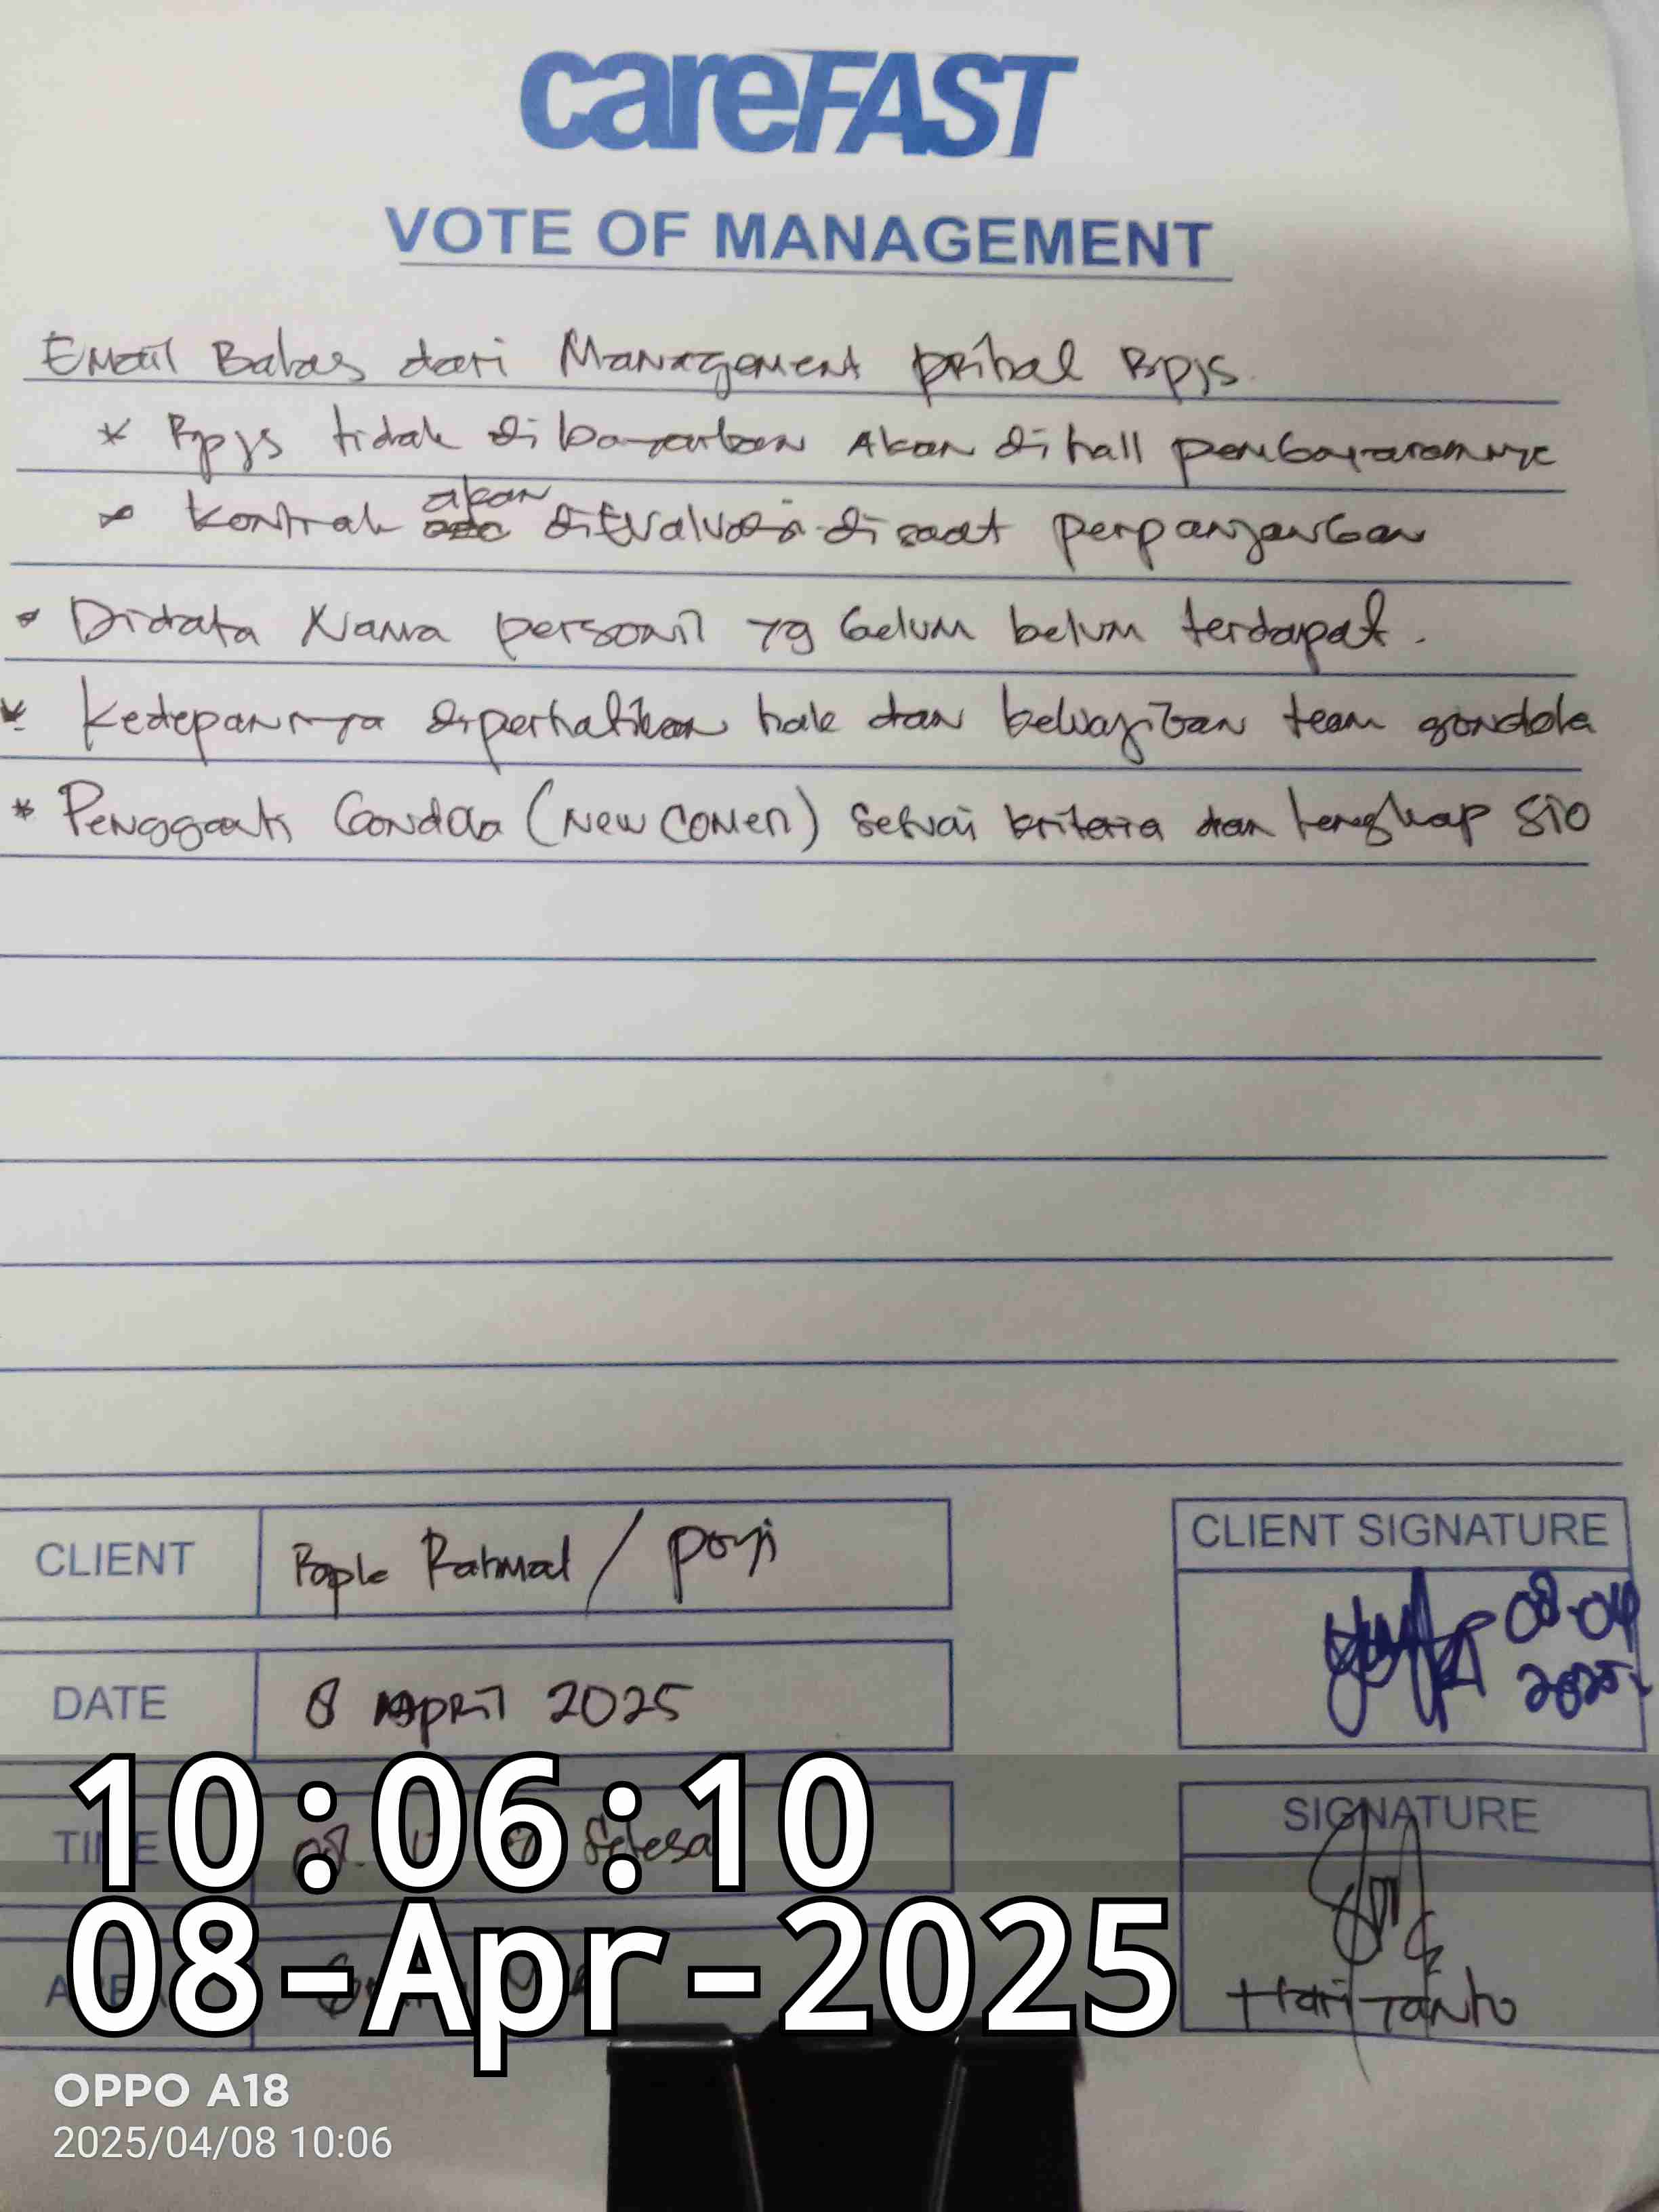 careFAST
VOTE OF MANAGEMENT
Email Balas dari Management prihal Bpjs.
* Bpjs tidak dibayarkan Akan dihall pembayarannya
* Kontrak akan diEvaluasi disaat perpanjangan
* Didata Nama personil yg belum belum terdapat.
* Kedepannya diperhatikan hak dan kewajiban team gondola
* Pengganti Gondola (New Comer) Sesuai kriteria dan lengkap SIO
CLIENT
Rahmad / poji
CLIENT SIGNATURE
08-04
2025
DATE
8 April 2025
10:06:10
TIME
Selesai
SIGNATURE
08-Apr-2025
AREA
Hariyanto
OPPO A18
2025/04/08 10:06